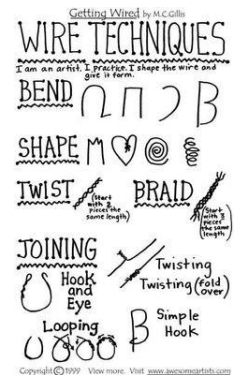 Getting Wired by M.C.Gillis
WIRE TECHNIQUES
I am an artist. I practice. I shape the wire and
give it form.
BEND
SHAPE
TWIST
(Start
with 2
pieces the
same length)
BRAID
(Start
with 3
pieces
the same
length)
JOINING
Hook
and
Eye
Twisting
Twisting (fold
over)
Looping
Simple
Hook
Copyright © 1999 View more. Visit www.awesomeartists.com